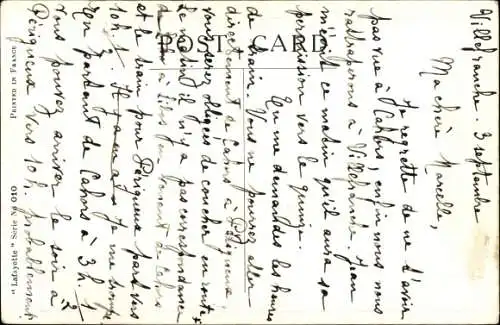 POST CARD
Villefranche. 3 septembre
Ma chère Marcelle,
Je regrette de ne t'avoir
pas vue à Cahors; enfin nous nous
rattraperons à Villefranche. Jean
m'écrit ce matin qu'il aura sa
permission vers le quinze.
Tu me demandes les heures
de train. Vous ne pouvez aller
directement de Cahors à Périgueux
vous serez obligés de coucher en route
le matin il n'y a pas correspondance
et le train pour Périgueux part vers
10h. 1
En partant de Cahors à 3h. 1/2
vous pouvez arriver le soir à
Périgueux vers 10h. probablement
"Lafayette" Série No 010
PRINTED IN FRANCE